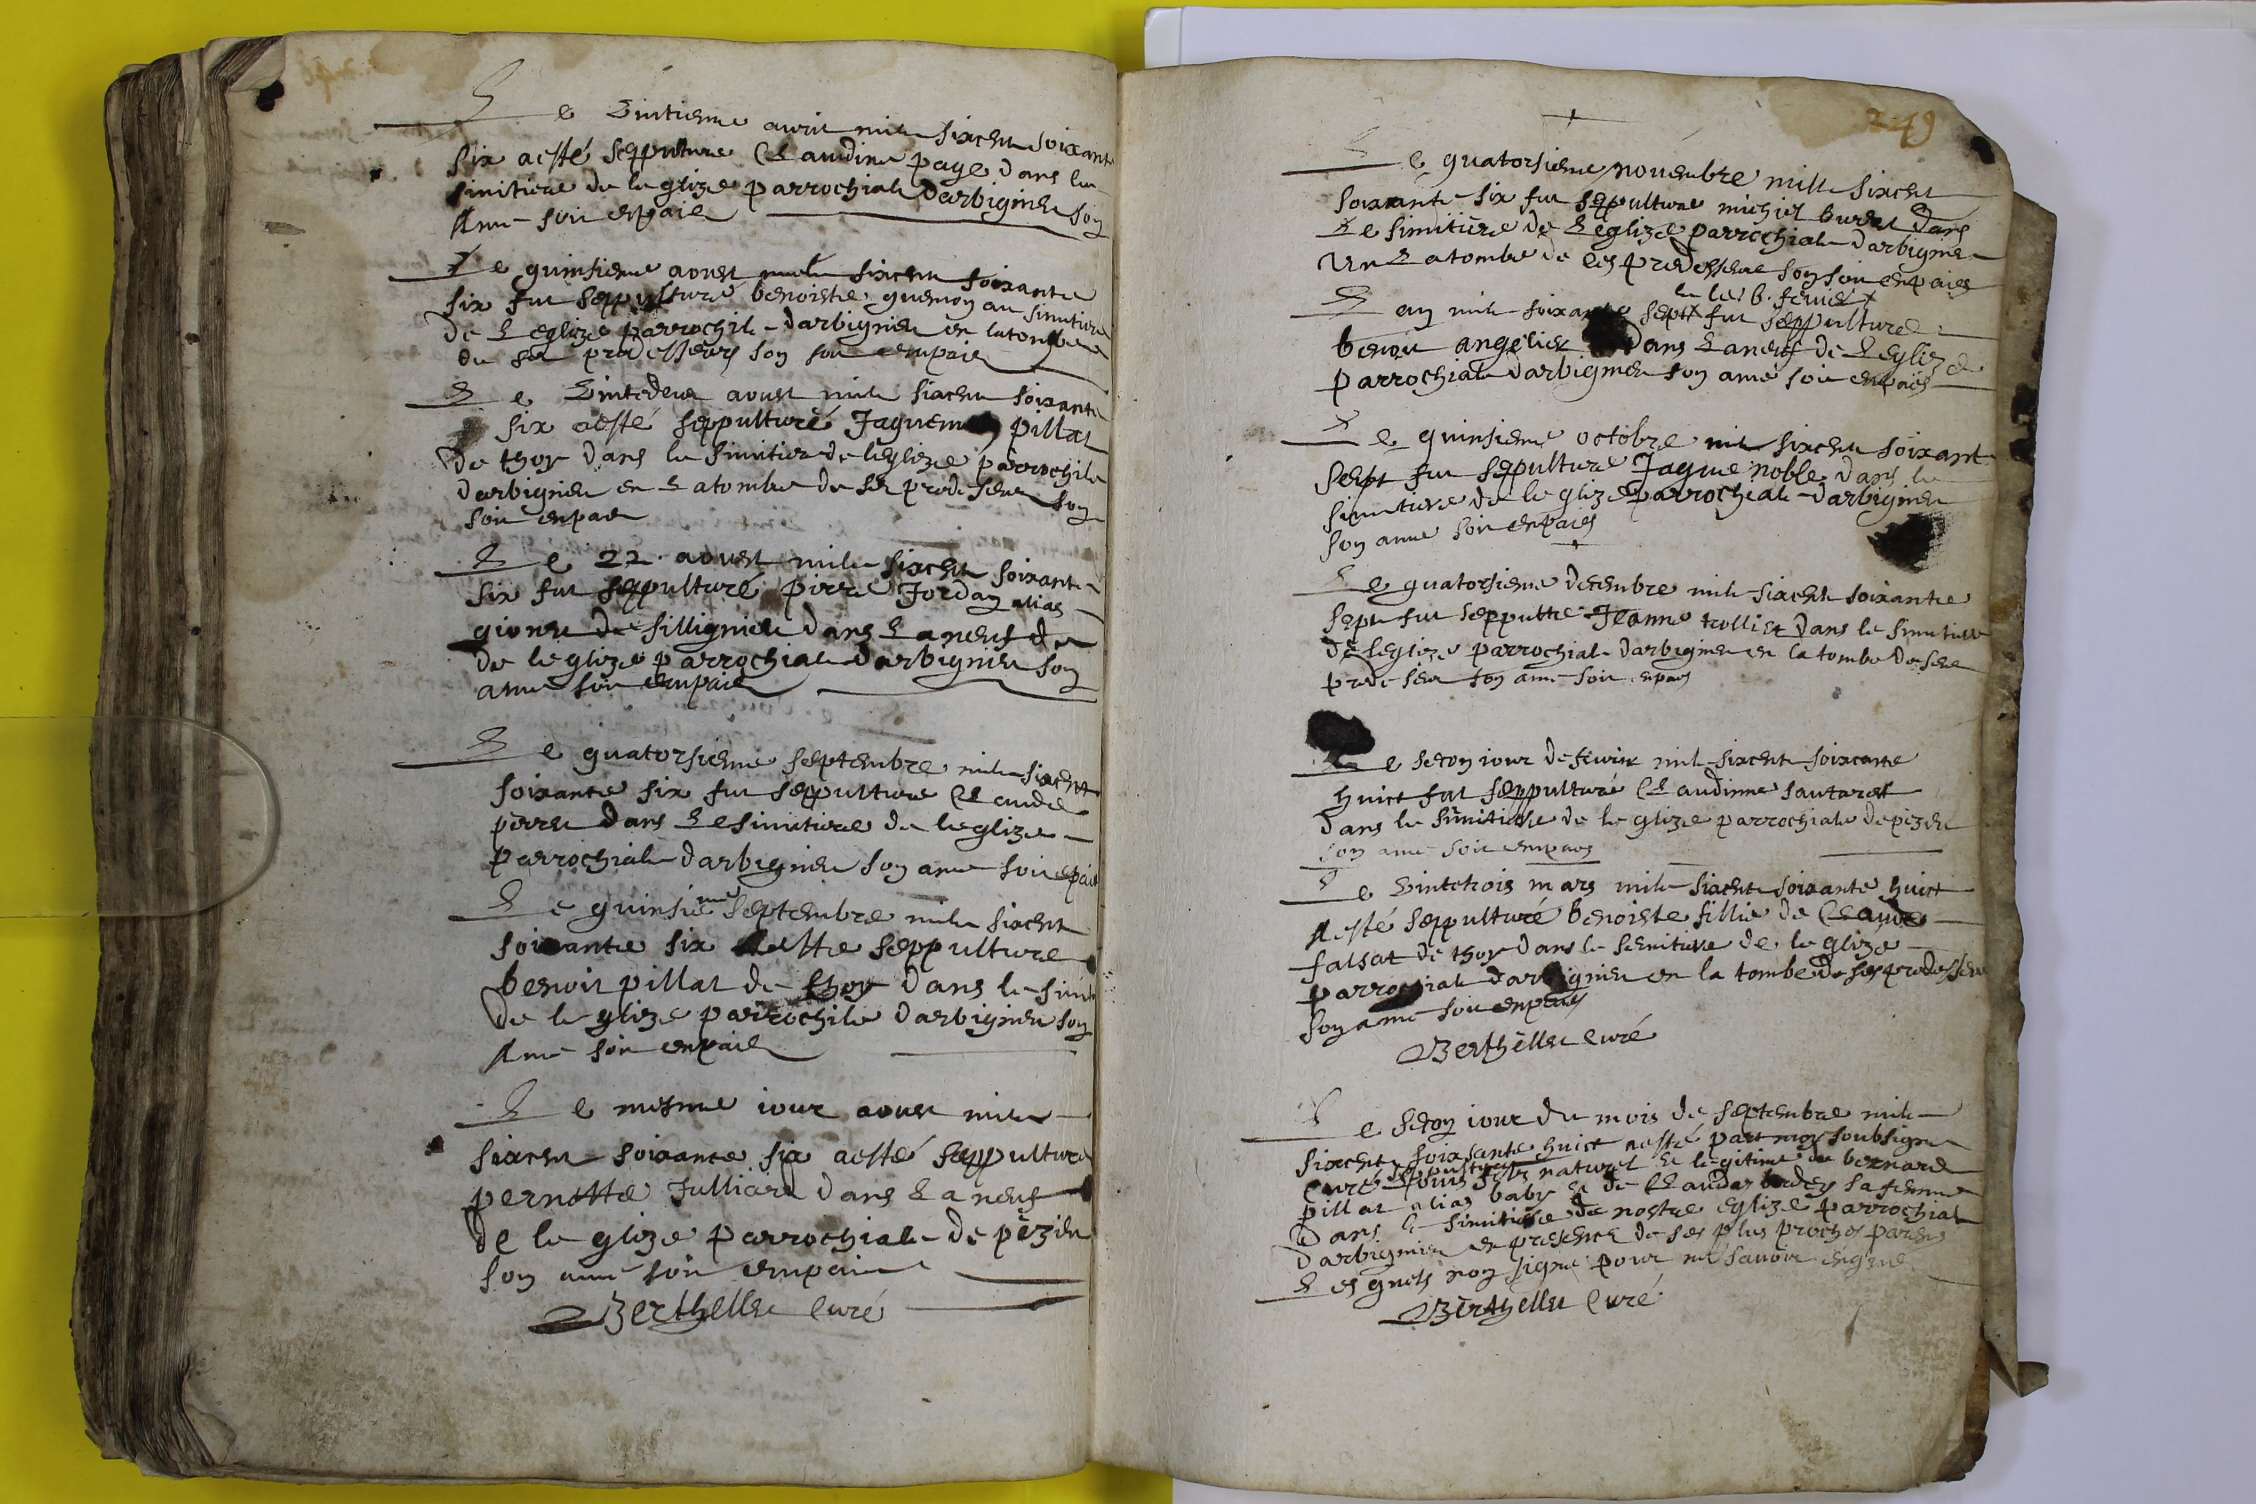 Le vintieme avril mile sixcent soixante
six a esté sepputture Claudine page dans le
simitiere de leglize parrochiale darbignieu son
Ame soit enpaie
Le quinsieme aoust mile sixcent soixante
six fut seppulturé benoiste quemon au simitiere
de Leglize parrochile darbignieu en latombe
de ses predesseurs son soit enpaie
Le vintedeux aoust mile sixcent soixante
six aesté seppulturé Jaquem pillat
de thoy dans le simitier de leglize parrochile
darbignieu en Latombe de ses predeseurs son
soit enpaie
Le 22 aoust mile sixcent soixante
six fut seppulturé pierre Jordan alias
gioneu de sillignieu dans Laneuf de
de leglize parrochiale darbignieu son
ame soit enpaie
Le quatorsieme septembre mile sixcent
soixante six fut seppulture Claude
pierre dans Lesimitiere de leglize
parrochiale darbignieu son ame soit epaie
Le quinsieme septembre mile sixcent
soixante six a este seppulture
benoit pillat de thoy dans le simit
de leglize parrochile darbignieu son
Ame soit enpaie
Le mesme iour aoust mile
sixcent soixante six aesté seppulture
pernette Julliard dans Laneuf
de leglize parrochiale de pezieu
son ame soit enpaie
Berthellet Curé
249
Le quatorsieme novembre mille sixcent
soixante six fut seppulture michiel buret dans
Le simitiere de Leglize parrochiale darbignieu
en Latombe de ces predesseur son soit enpaies
le 16. fevrier
Lan mile soixante sept fut seppulture
benoit angelier dans Laneuf de Leglize
parrochiale darbignieu son ame soit enpaies
Le quinsieme octobre mil sixcent soixant
sept fut sepulture Jaque noble dans le
simitiere de leglize parrochiale darbignieu
son ame soit enpaies
Le quatorsieme decembre mile sixcent soixante
sept fut sepputtre Jeanne trollier dans le simitiere
de leglize parrochiale darbignieu en la tombe de ses
predeseur son ame soit enpaies
Le secon iour de fevrier mil sixcent soixcante
huict fut seppulturé Claudinne sautaret
dans le simitiere de leglize parrochiale depezieu
son ame soit enpaies
Le vintetrois mars mile sixcent soixante huict
Aesté seppulturé benoiste fillie de Claude
falsat de thoy dans le semitiere de leglize
parrochiale darbignieu en la tombe de ses predesseur
son ame soit enpaies
Berthellet Curé
Le secon iour du mois de septembre mile
sixcent soixsante huict aesté part moy soubsigne
Curé seppulture fils naturel et legitime de bernard
pillat alias baby et de Claude sa femme
dans le simitiere de nostre eglize parrochial
darbignieu en presence de ses plus proches parens
Lesquels non signe pour ne savoir
Berthellet Curé